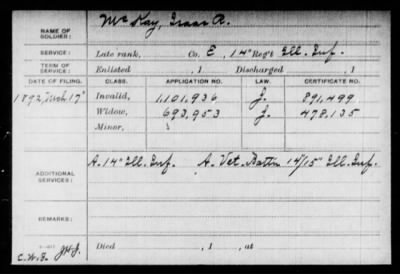 NAME OF SOLDIER: McKay, Isaac R.
SERVICE: Late rank, Co. E, 14" Reg't Ill. Inf.
TERM OF SERVICE: Enlisted , 1 Discharged , 1
DATE OF FILING. CLASS. APPLICATION NO. LAW. CERTIFICATE NO.
1892, Mch. 17" Invalid, 1.101,936 J. 891,499
Widow, 693,953 J. 478,135
Minor,
ADDITIONAL SERVICES: A. 14" Ill. Inf. A. Vet. Battn 14/15" Ill. Inf.
REMARKS:
Died , 1 , at